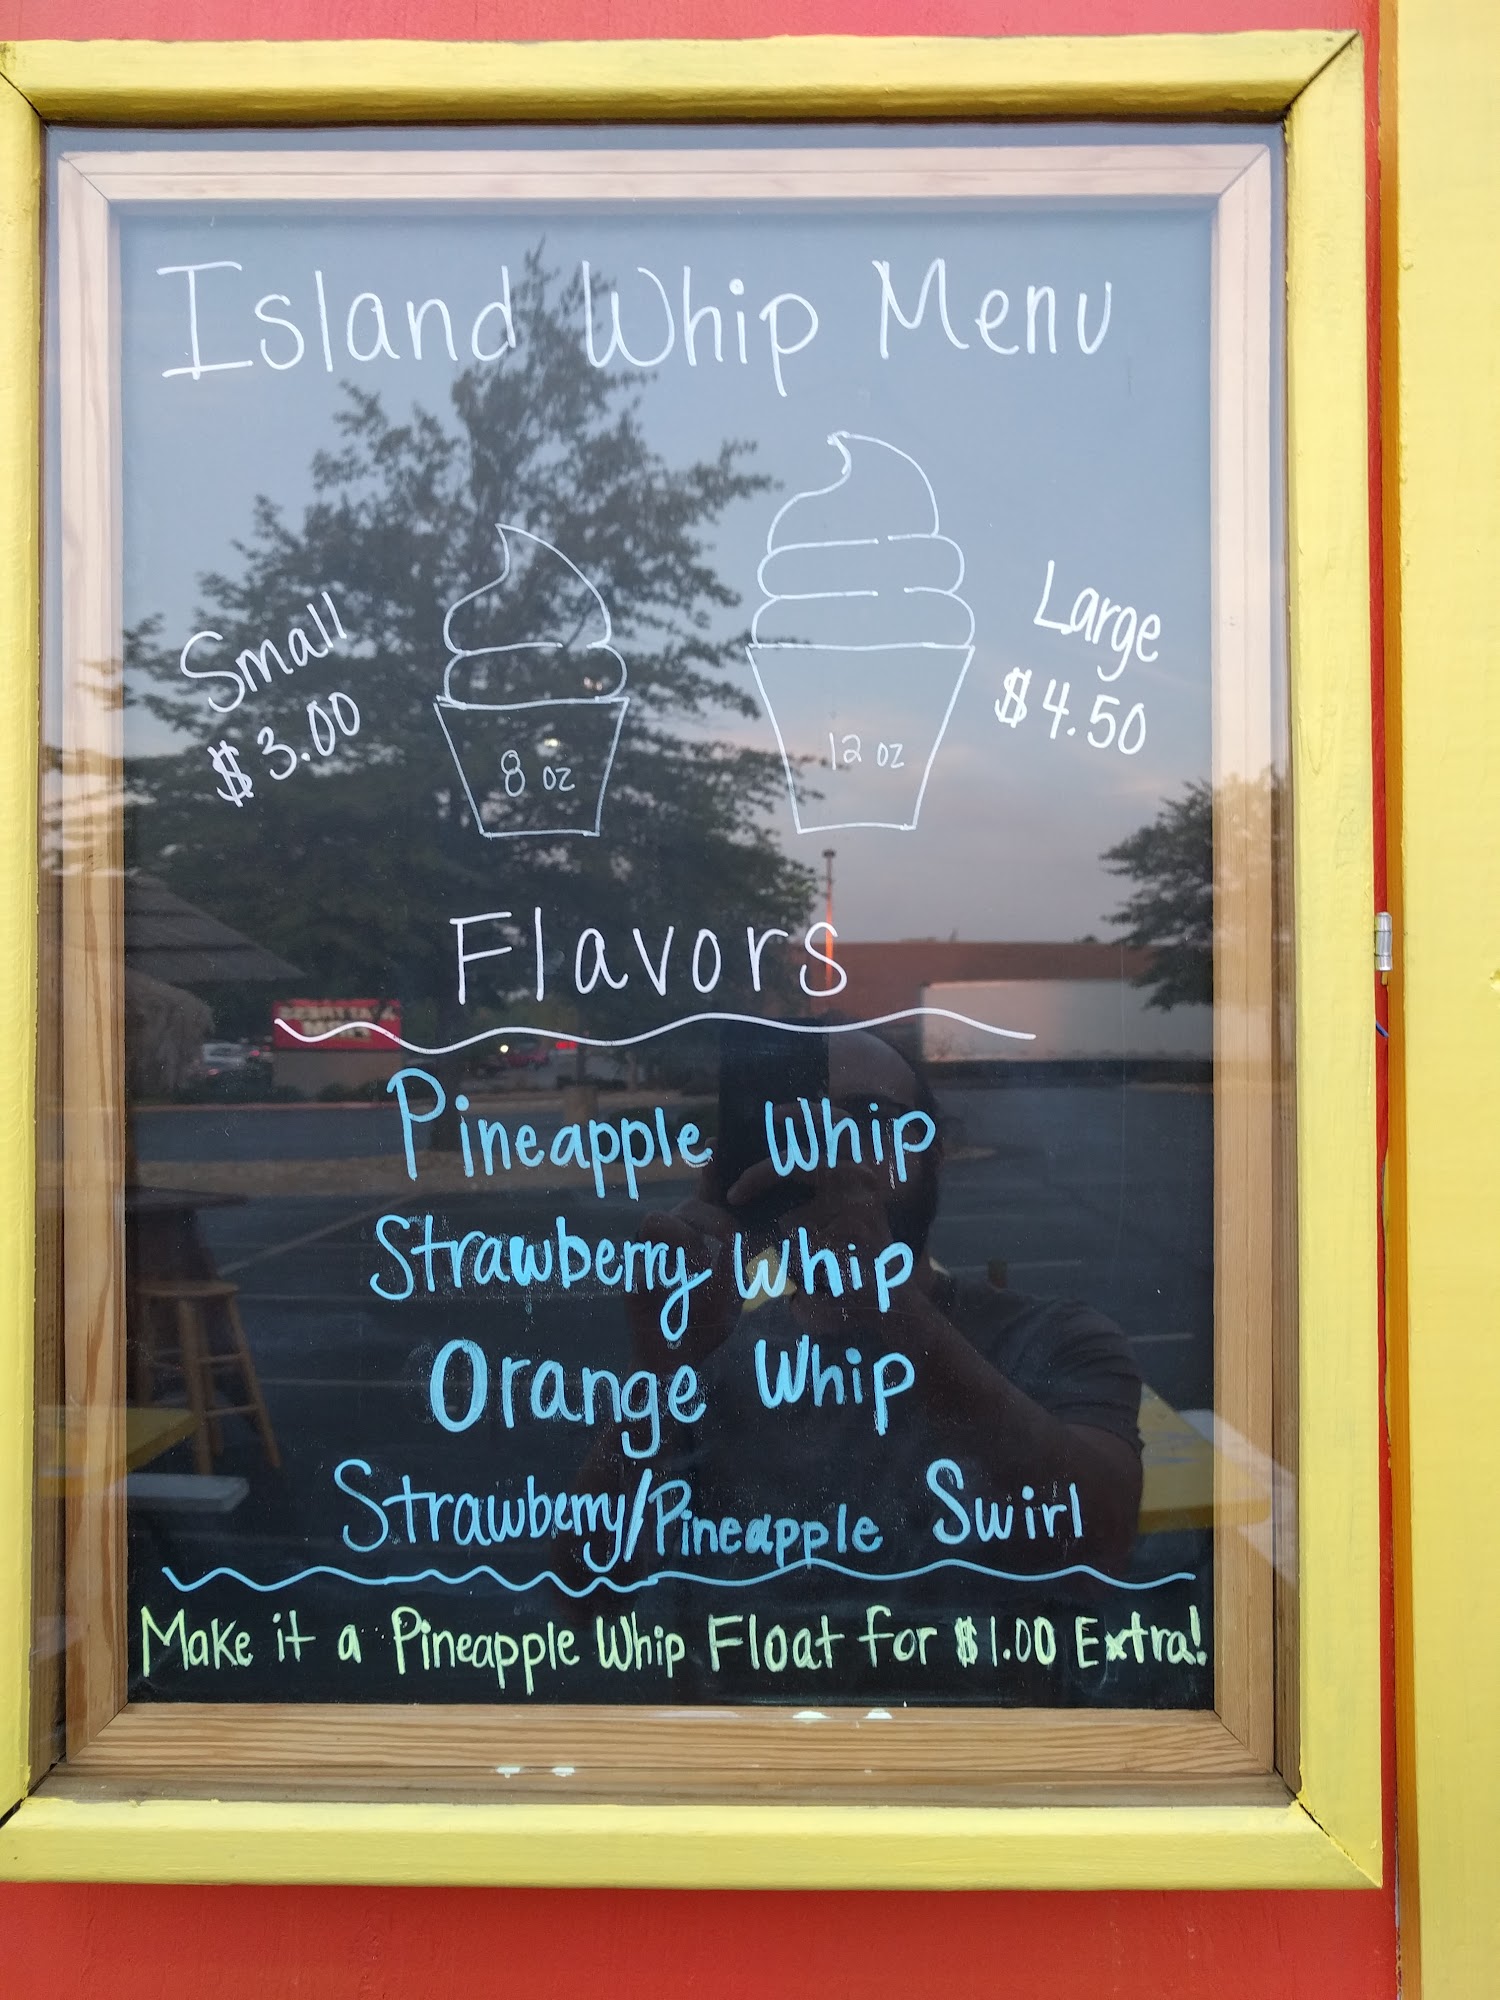 Island Whip Menu
Small
$3.00
8 oz
12 oz
Large
$4.50
Flavors
Pineapple Whip
Strawberry Whip
Orange Whip
Strawberry/Pineapple Swirl
Make it a Pineapple Whip Float for $1.00 Extra!